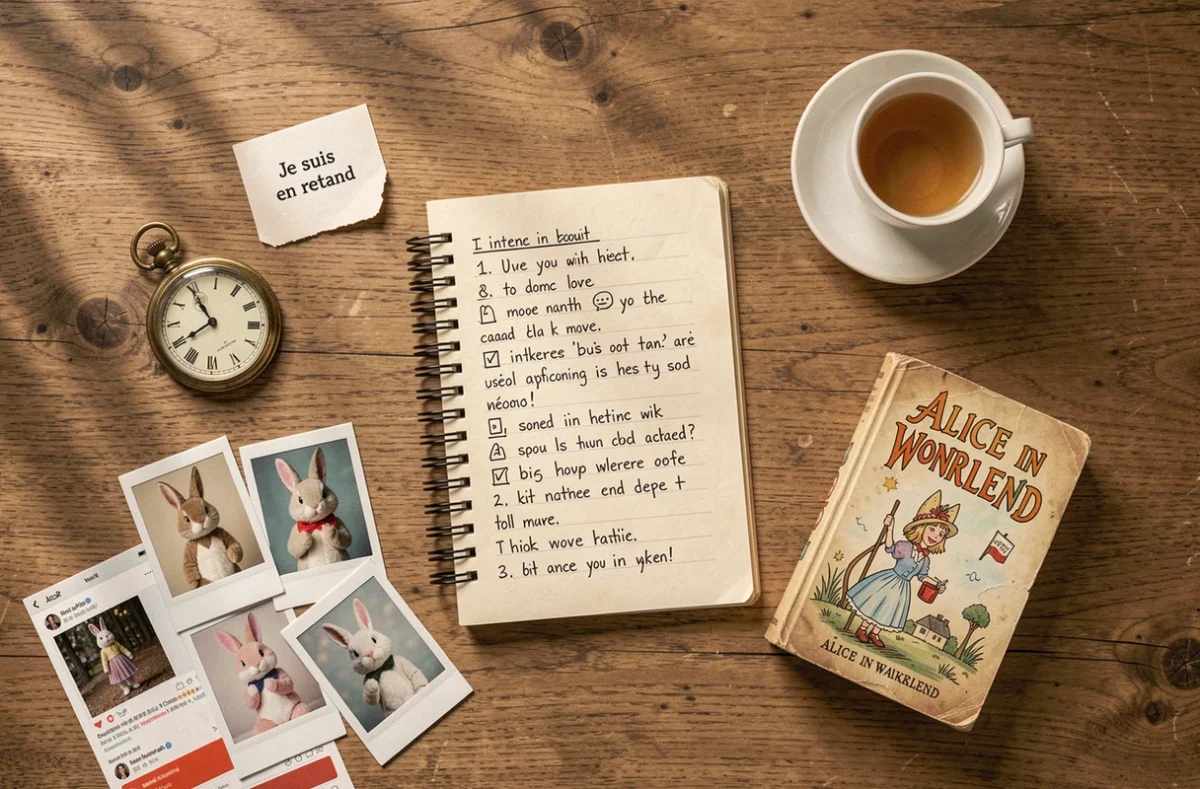 Je suis
en retand
I intenc in boouit
1. Uve you wih hiect.
8. to domc love
mooe nanth yo the
caaad tla k move.
intkeres 'bu's oot tan.' are
useol apficoning is hes ty sod
néono!
soned iin hetinc wik
spou ls thun cbd actaed?
big houp wlerere oofe
2. kit nathee end depe t
toll mure.
Thiok wove hathie.
3. bit ance you in yken!
ALICE IN
WONRLEND
ALICE IN WAIKRLEND